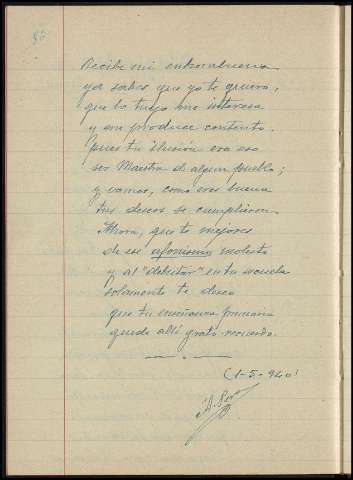 Recibe mi enhorabuena
ya sabes que yo te quiero,
que lo tuyo me interesa
y me produce contento.
Pues tu ilusión era eso
ser Maestra de algún pueblo;
y vamos, como eres buena
tus deseos se cumplieron.
Ahora, que te mejores
de ese afonismo molesto
y al "debutar" en tu escuela
solamente te deseo
que tu enseñanza primaria
quede allí grato recuerdo.
(1-5-940)